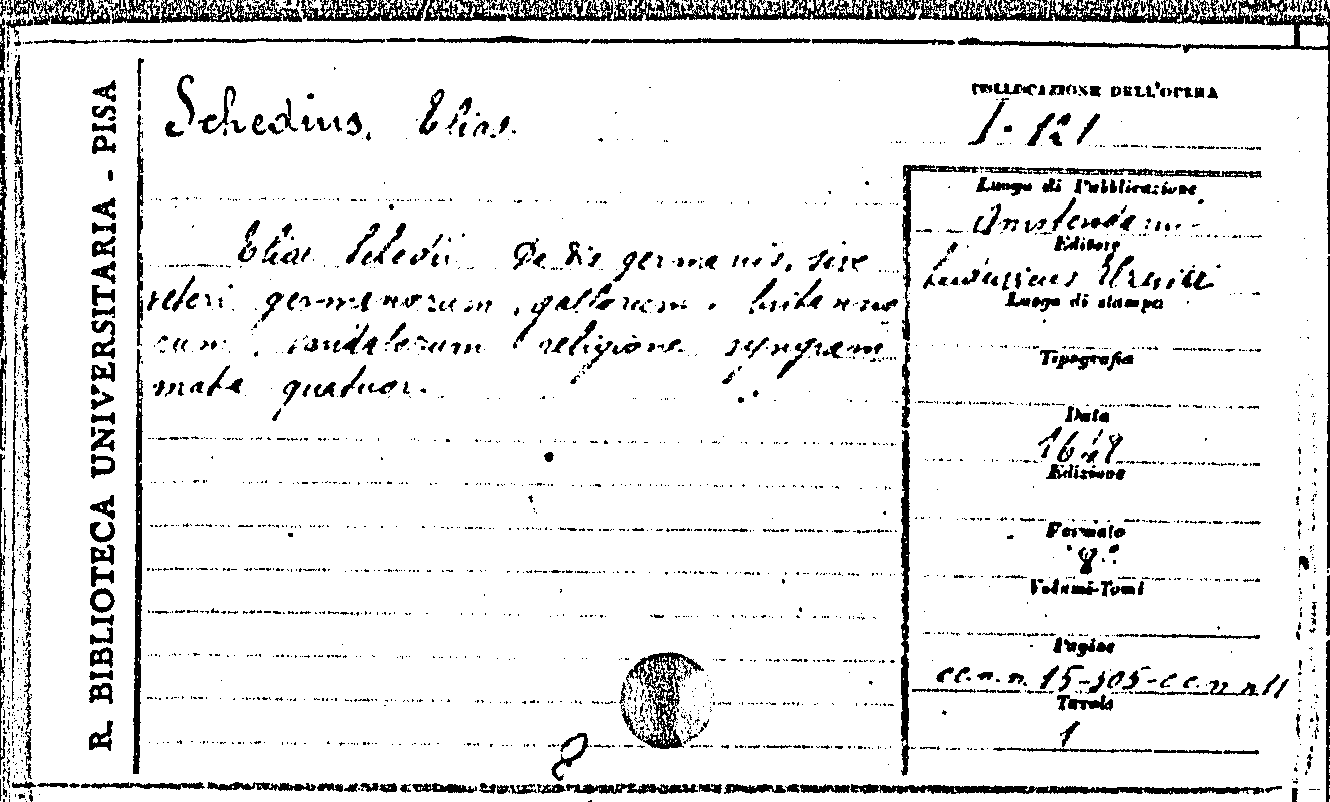 R. BIBLIOTECA UNIVERSITARIA - PISA
Schedius, Elias.
COLLOCAZIONE DELL'OPERA
I. 121
Eliae Schedii De Dis germanis, sive
veteri germanorum, gallorum, britanno
rum, vandalorum religione syngram
mata quatuor.
Luogo di Pubblicazione
Amsterdami
Editore
Ludovicus
Luogo di stampa
Tipografia
Data
Edizione
Formato
8º
Volumi-Tomi
Pagine
cc.n.n. 15-505-cc.n.n 11
Tavole
1